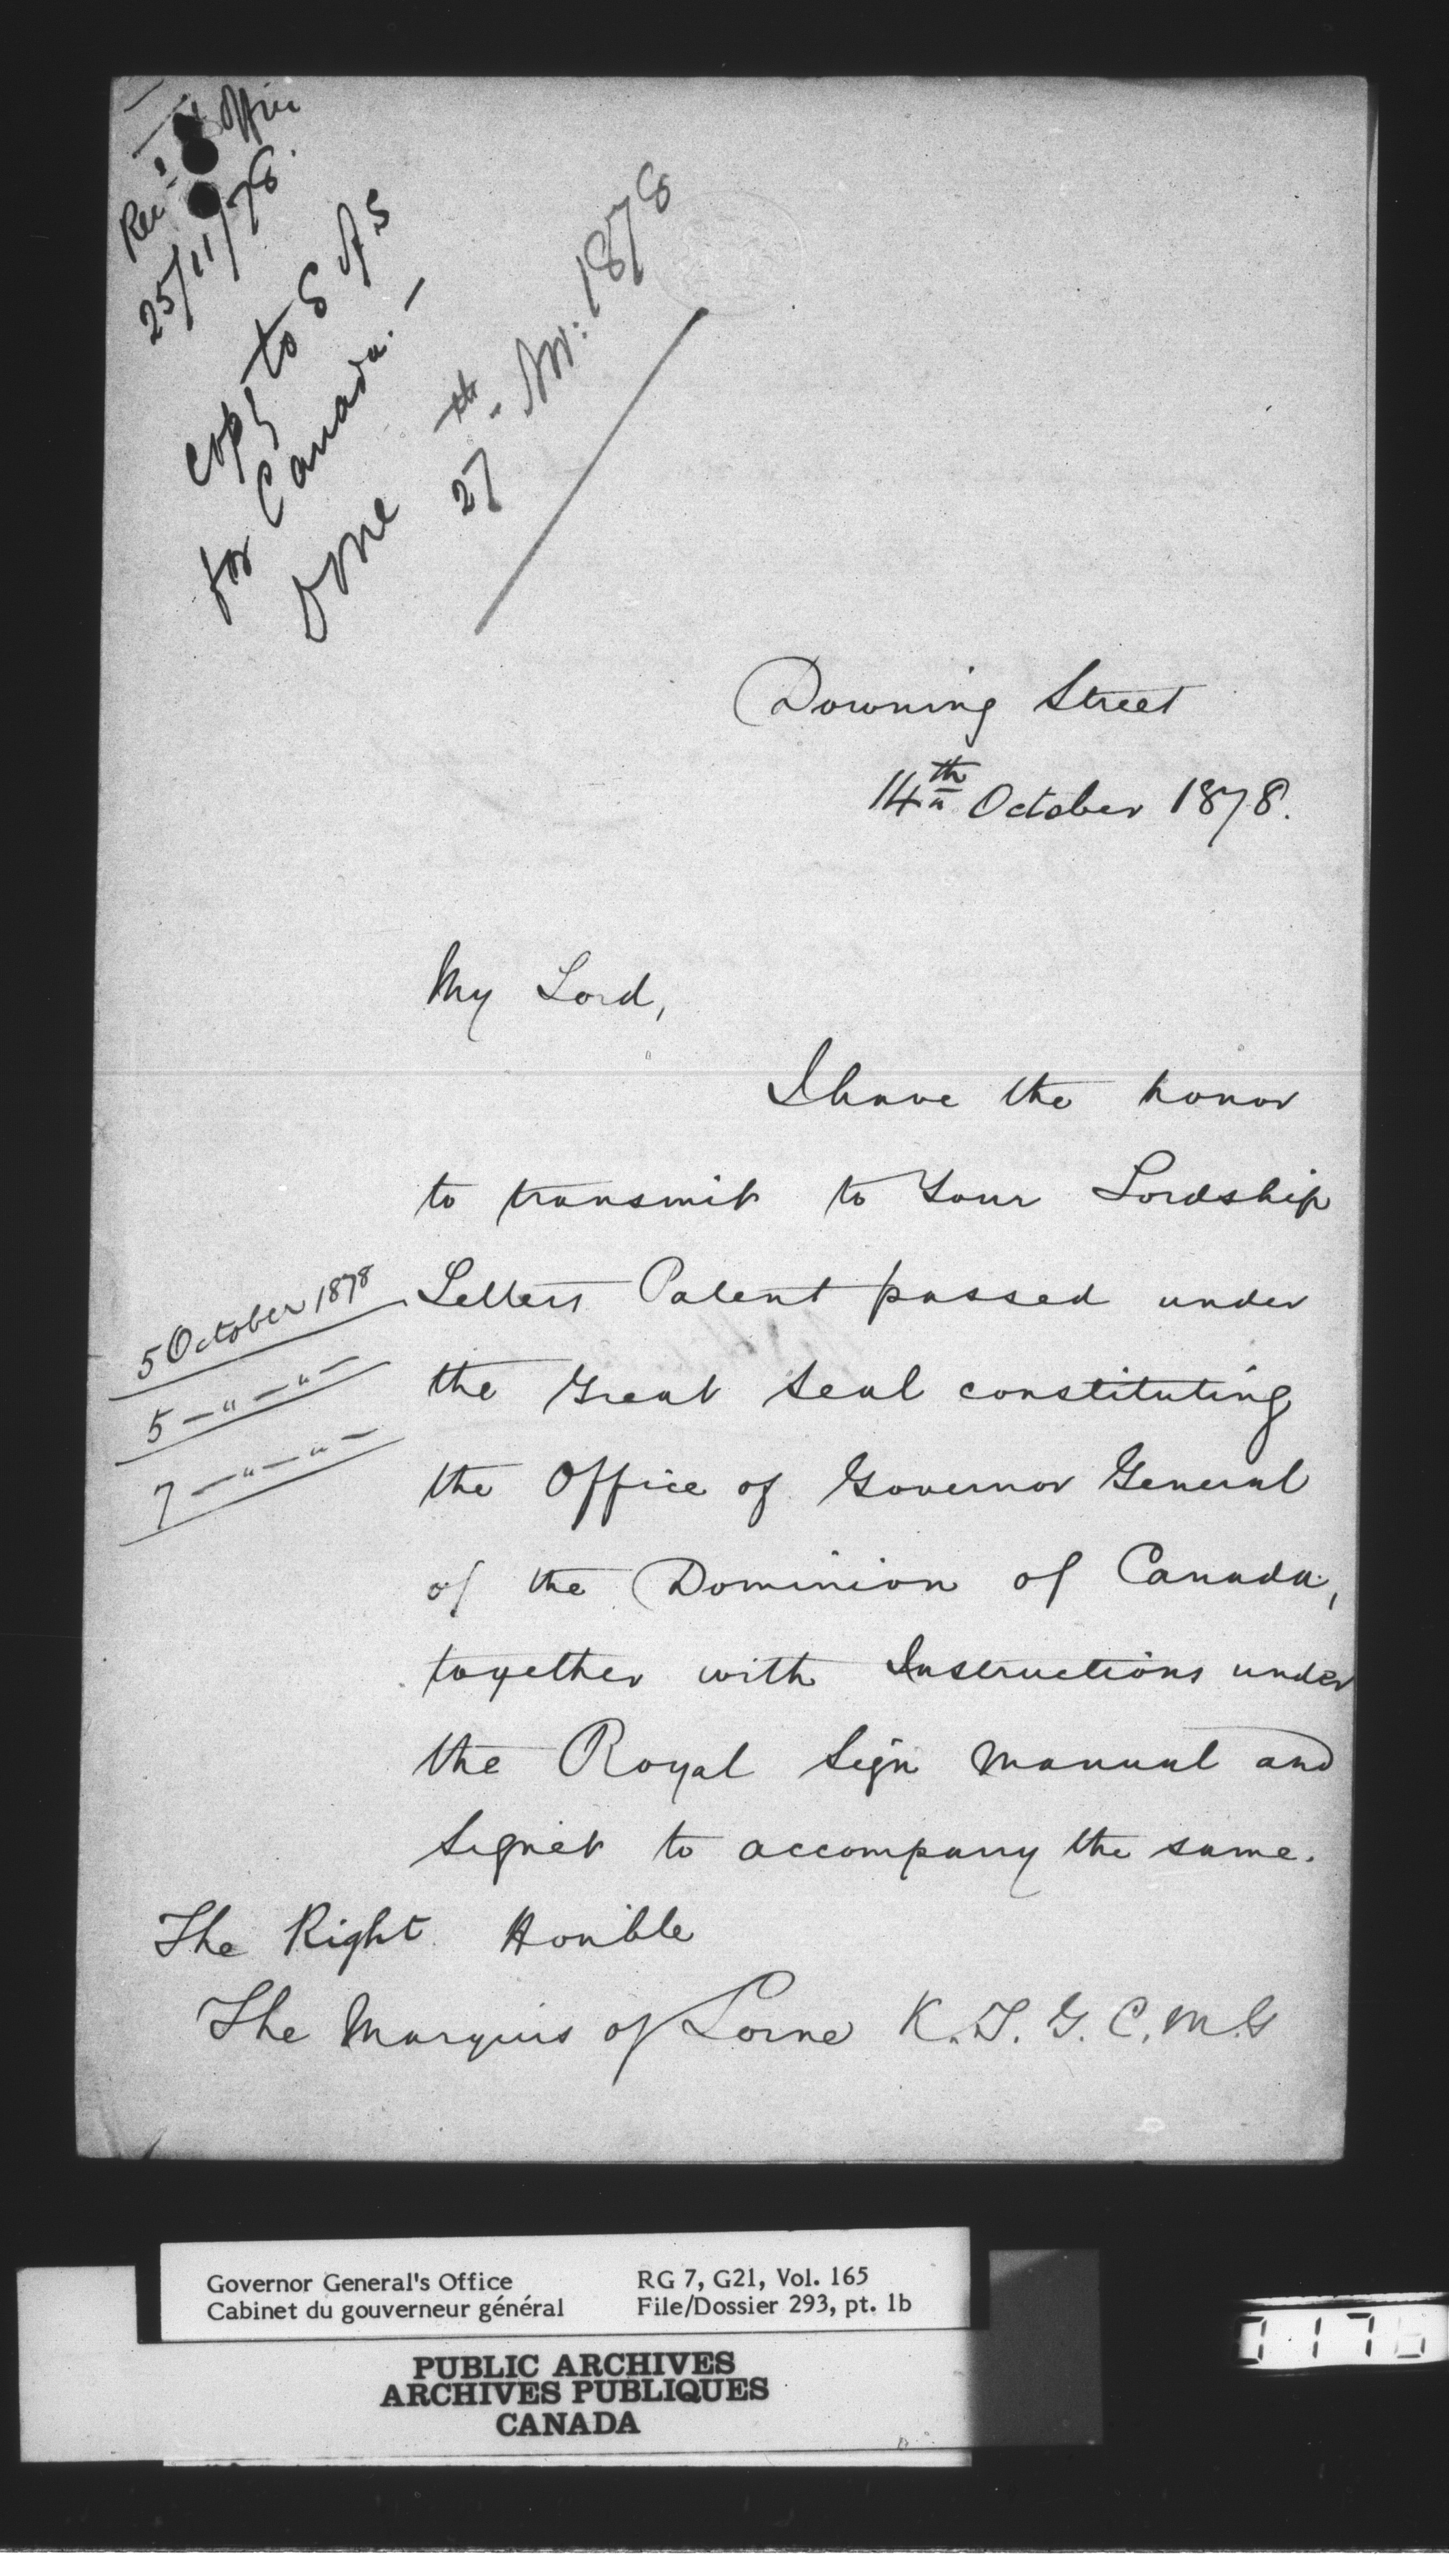 Rec'd Office
25/11/78.
Copy to S of S
for Canada. —
Done 27th Nov: 1878
Downing Street
14th October 1878.
My Lord,
I have the honor
to transmit to Your Lordship
5 October 1878
5 — " — " —
7 — " — " —
Letters Patent passed under
the Great Seal constituting
the Office of Governor General
of the Dominion of Canada,
together with Instructions under
the Royal Sign Manual and
Signet to accompany the same.
The Right Honible
The Marquis of Lorne K.T. G.C.M.G
Governor General's Office
Cabinet du gouverneur général
RG 7, G21, Vol. 165
File/Dossier 293, pt. 1b
PUBLIC ARCHIVES
ARCHIVES PUBLIQUES
CANADA